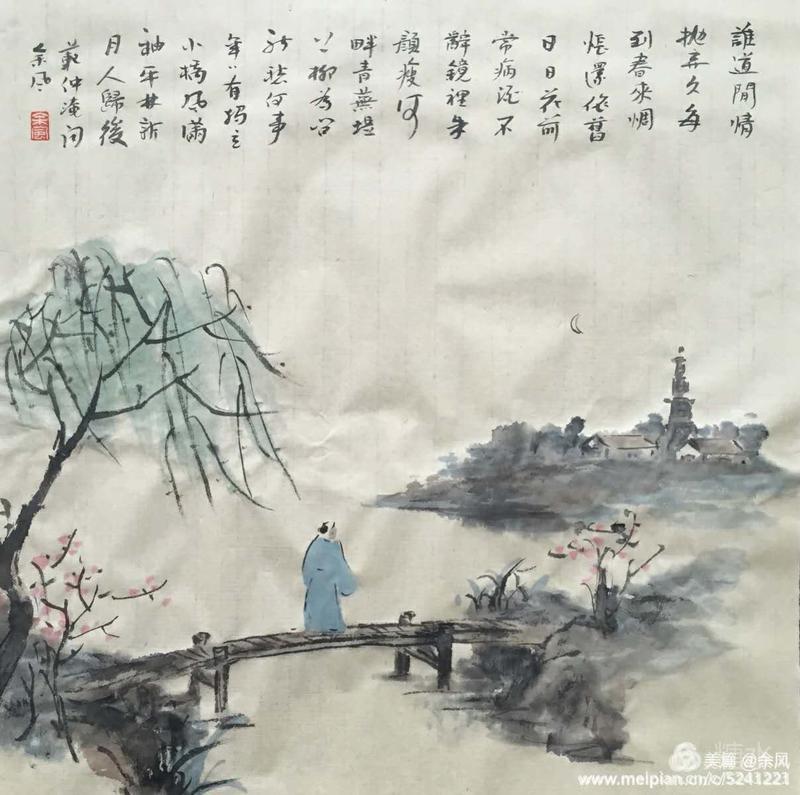 誰道閒情
抛弃久每
到春來惆
悵還依舊
日日花前
常病酒不
辭鏡裡朱
顏瘦河
畔青蕪堤
上柳為问
新愁何事
年〻有獨立
小橋风滿
袖平林新
月人歸後
範仲淹词
余风
余風
美篇 @余风
www.meipian.cn/c/5241221